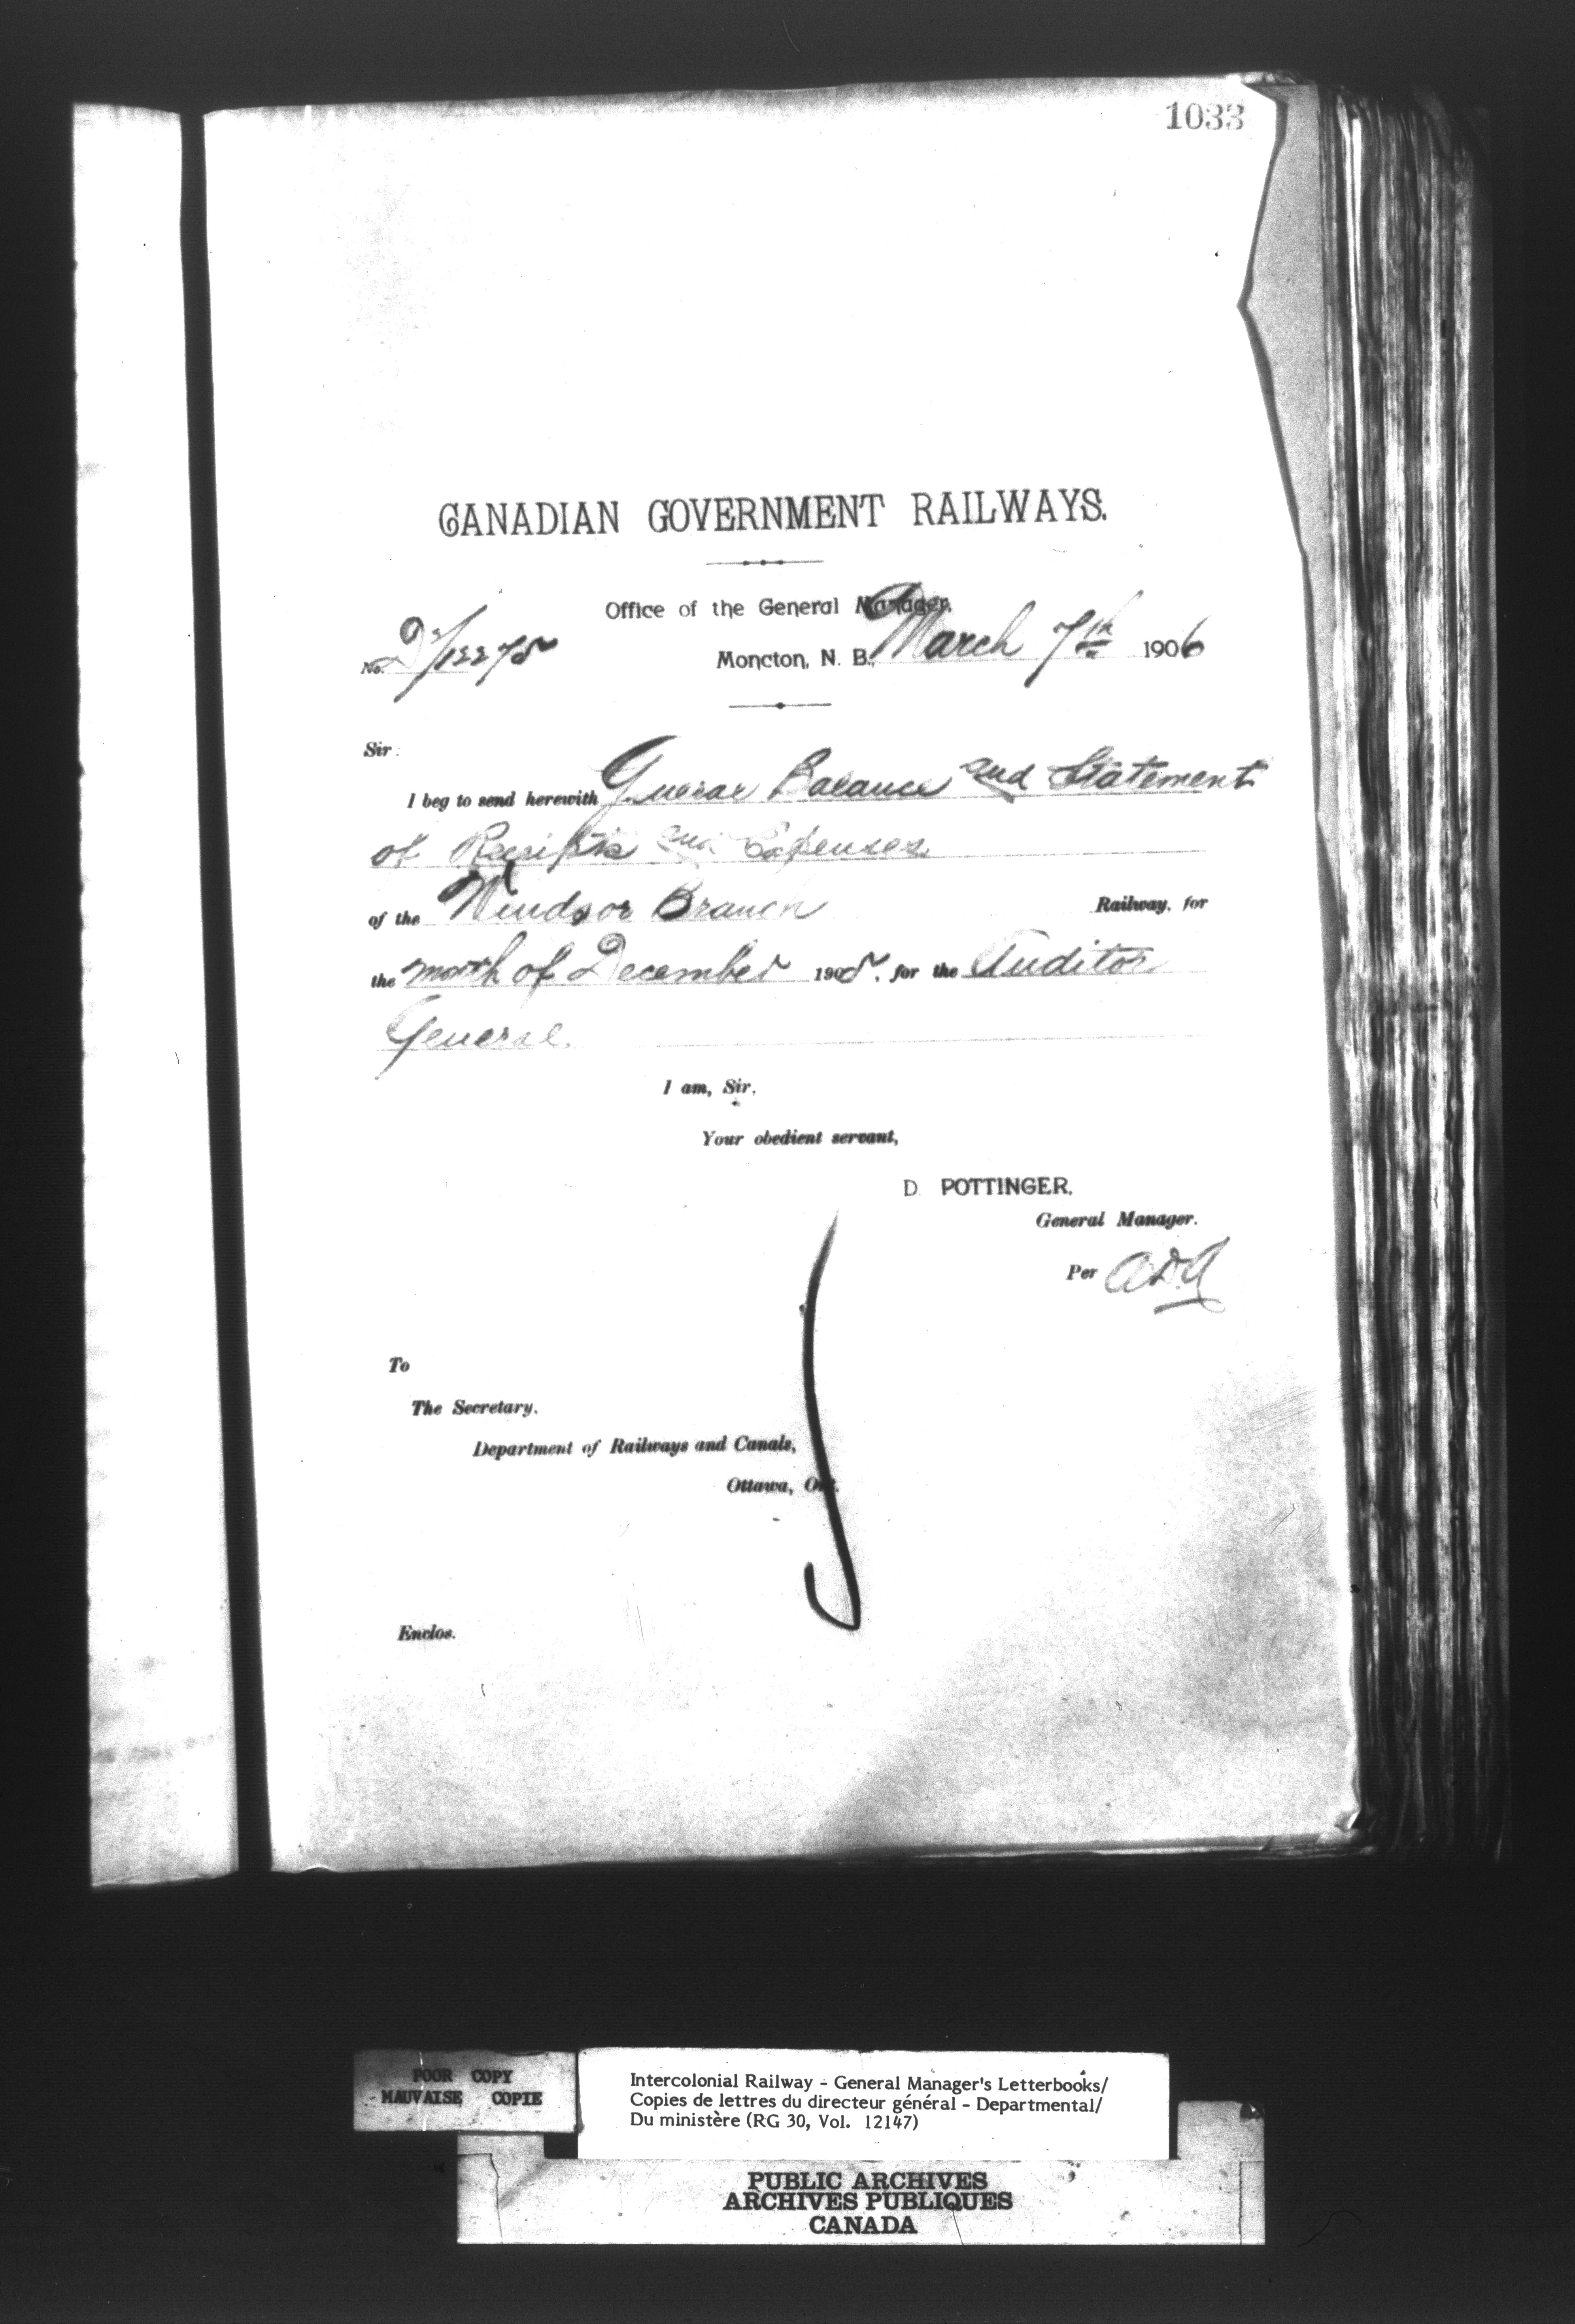 1033
CANADIAN GOVERNMENT RAILWAYS.
Office of the General Manager.
No. D/12275
Moncton, N. B., March 7th 1906
Sir:
I beg to send herewith General Balance and Statement
of Receipts and Expenses
of the Windsor Branch Railway, for
the month of December 1905, for the Auditor
General.
I am, Sir,
Your obedient servant,
D. POTTINGER,
General Manager.
Per
To
The Secretary,
Department of Railways and Canals,
Ottawa, Ont.
Enclos.
POOR COPY
MAUVAISE COPIE
Intercolonial Railway - General Manager's Letterbooks/
Copies de lettres du directeur général - Departmental/
Du ministère (RG 30, Vol. 12147)
PUBLIC ARCHIVES
ARCHIVES PUBLIQUES
CANADA